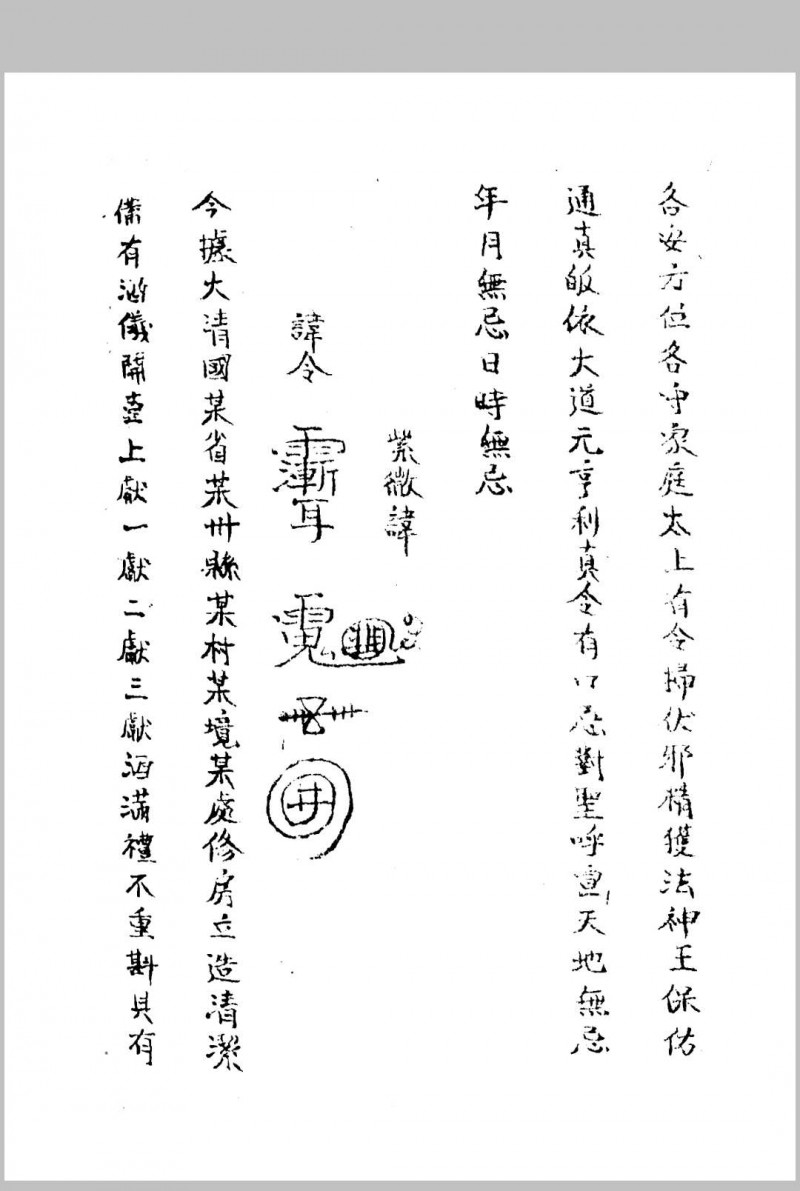 各安方位各守家庭太上有令掃伏邪精獲法神王保佑
通真皈依大道元亨利真令有口忌對聖呼重天地無忌
年月無忌日時無忌
紫微諱
諱令
今據大清國某省某州縣某村某境某處修房立造清潔
備有酒儀開壺上獻一獻二獻三獻酒滿禮不重斟具有